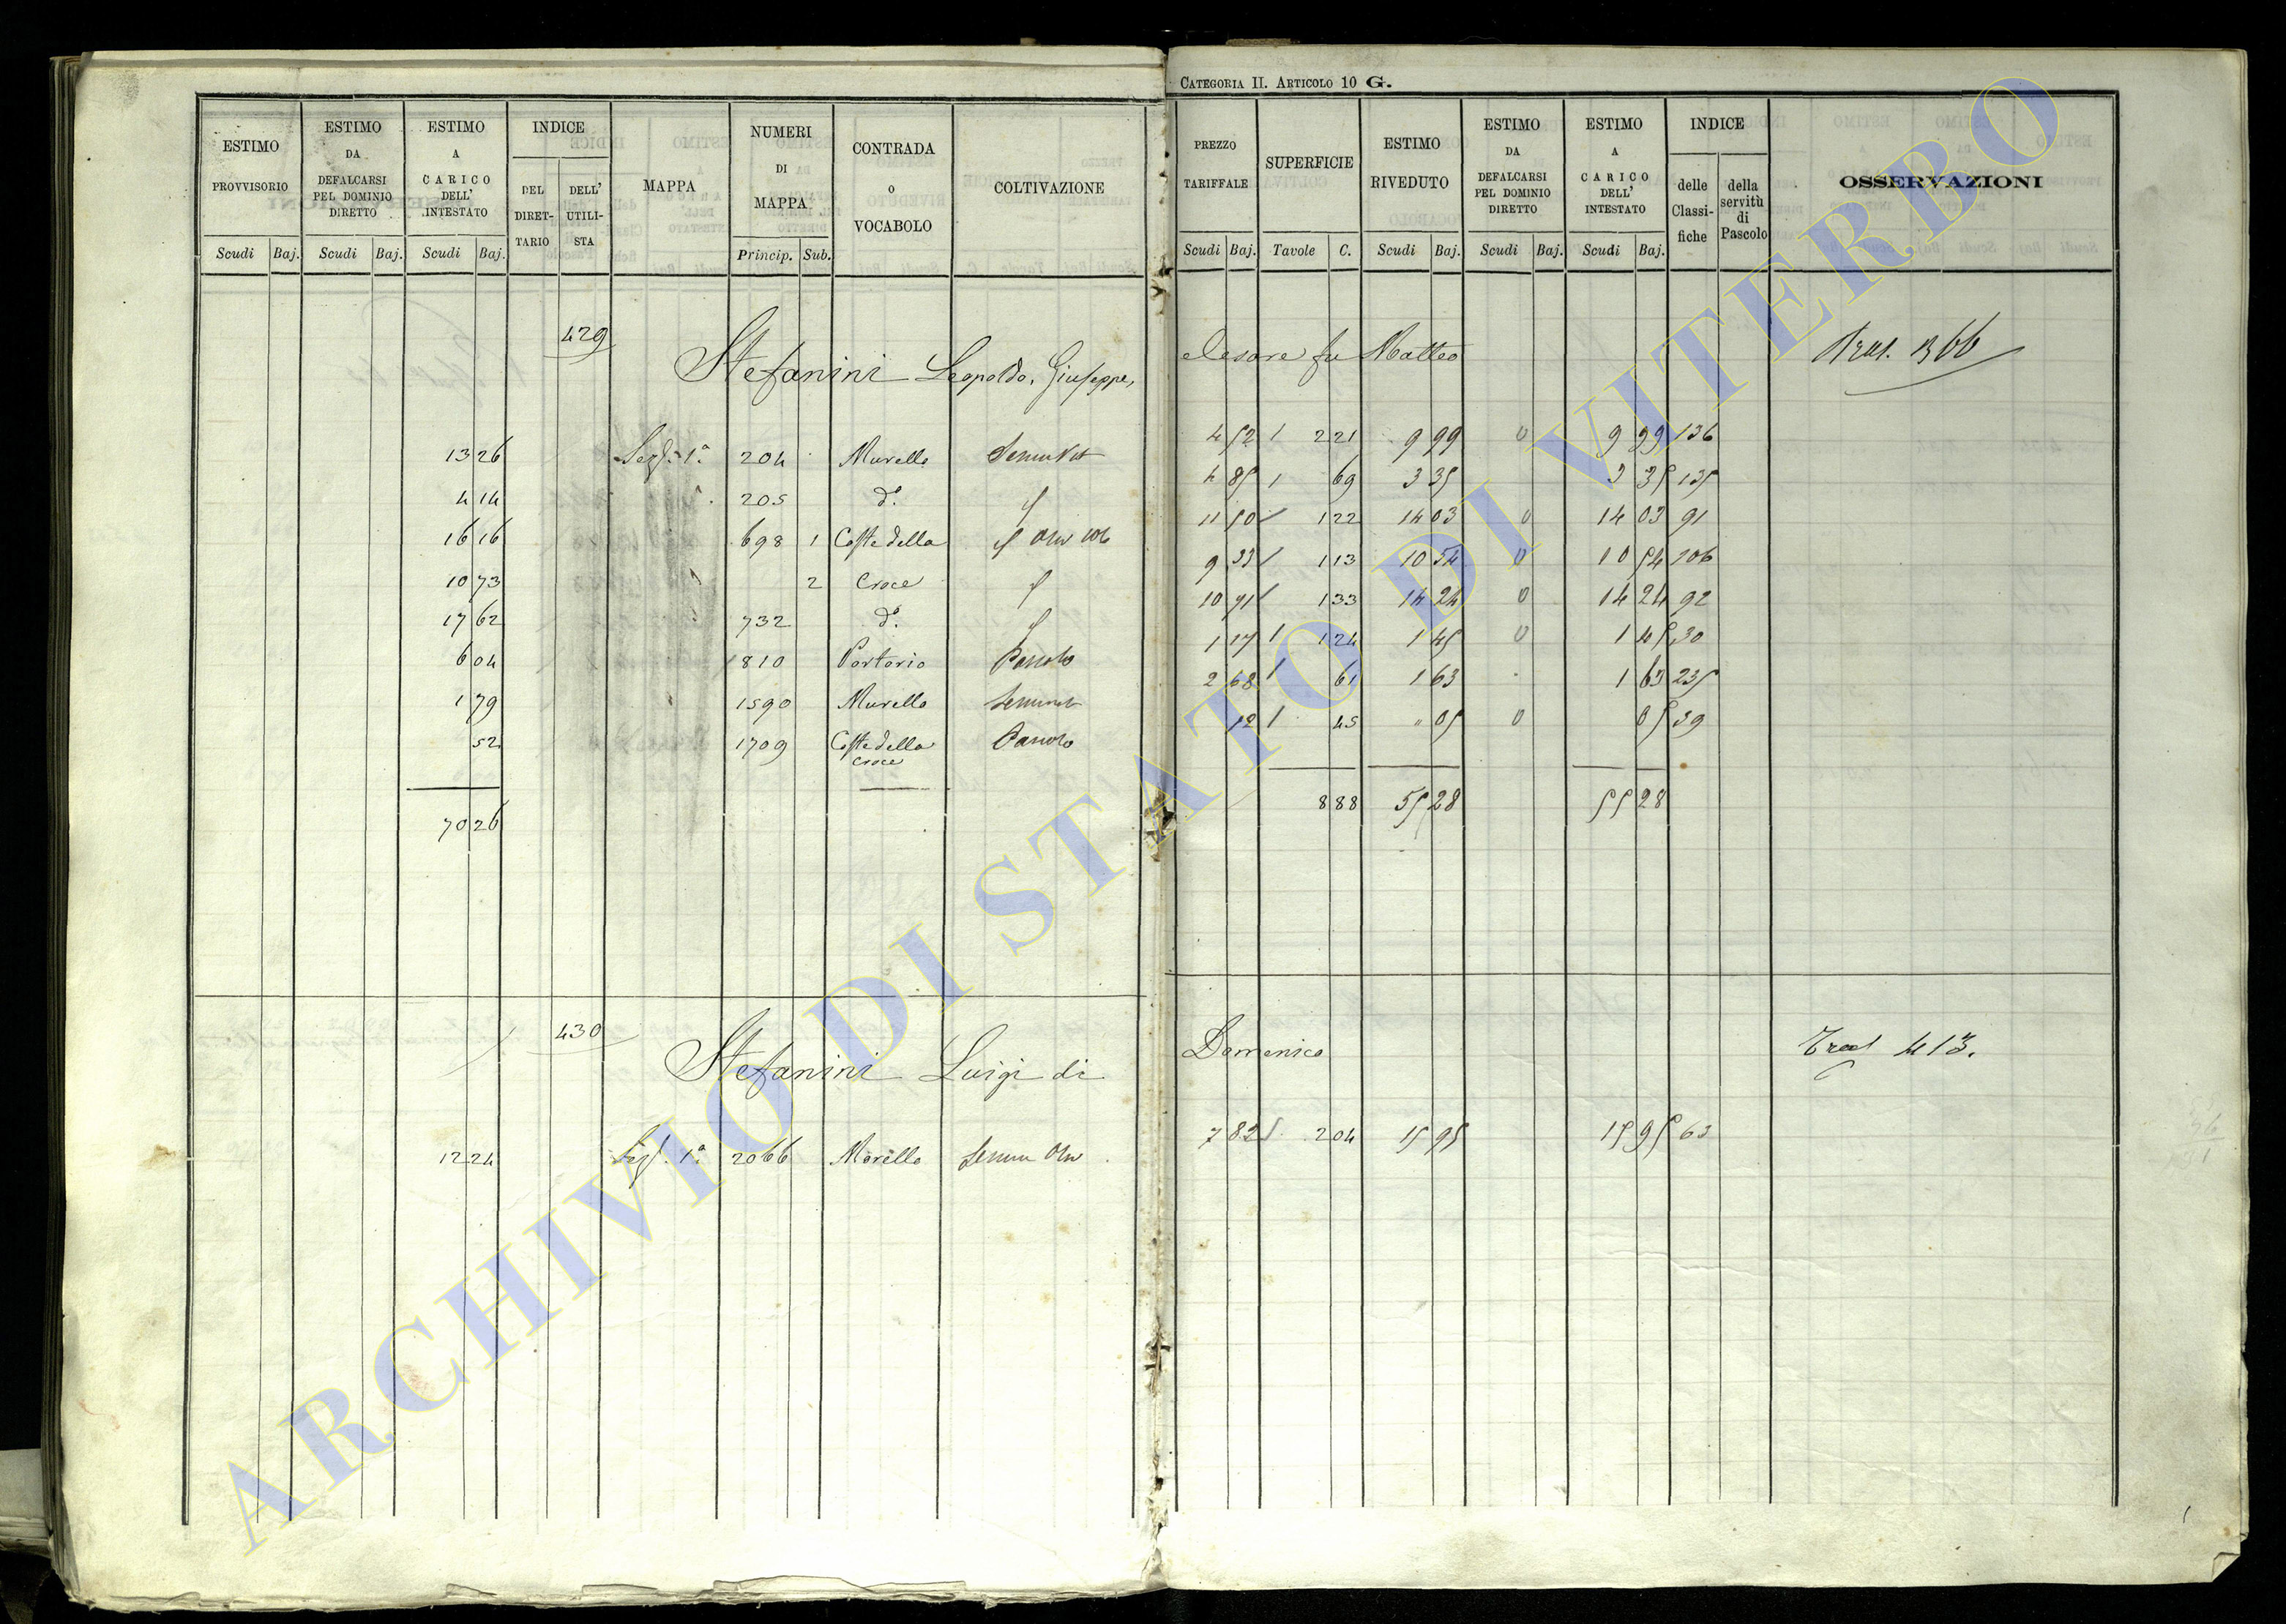 CATEGORIA II. ARTICOLO 10 G.
ESTIMO PROVVISORIO | ESTIMO DA DEFALCARSI PEL DOMINIO DIRETTO | ESTIMO A CARICO DELL' INTESTATO | INDICE DEL DIRETTARIO | DELL' UTILISTA | MAPPA | NUMERI DI MAPPA | CONTRADA O VOCABOLO | COLTIVAZIONE | PREZZO TARIFFALE | SUPERFICIE | ESTIMO RIVEDUTO | ESTIMO DA DEFALCARSI PEL DOMINIO DIRETTO | ESTIMO A CARICO DELL' INTESTATO | INDICE delle Classifiche | della servitù di Pascolo | OSSERVAZIONI
Scudi Baj. Scudi Baj. Scudi Baj. Princip. Sub. Scudi Baj. Tavole C. Scudi Baj. Scudi Baj. Scudi Baj.
429 Stefanini Leopoldo, Giuseppe, Cesare fu Matteo 1366
13 26 Sez. 1a 204 Murello 4 52 2 21 9 99 0 9 99 136
4 14 205 do. 4 85 69 3 35 3 35 135
16 16 698 1 Coste della 11 50 1 22 14 03 0 14 03 91
10 73 2 Croce 9 33 1 13 10 54 0 10 54 106
17 62 732 do. 10 71 1 33 14 24 0 14 24 92
6 04 810 Pascolo 1 17 1 24 1 45 0 1 45 30
1 79 1590 Murello 2 68 61 1 63 1 63 235
52 1709 Coste della Croce Pascolo 12 45 " 05 0 05 39
70 26 8 88 55 28 55 28
430 Stefanini Luigi di Domenico 413.
12 24 Sez. 1a 2066 Morello 7 82 2 04 15 95 15 95 63
ARCHIVIO DI STATO DI VITERBO